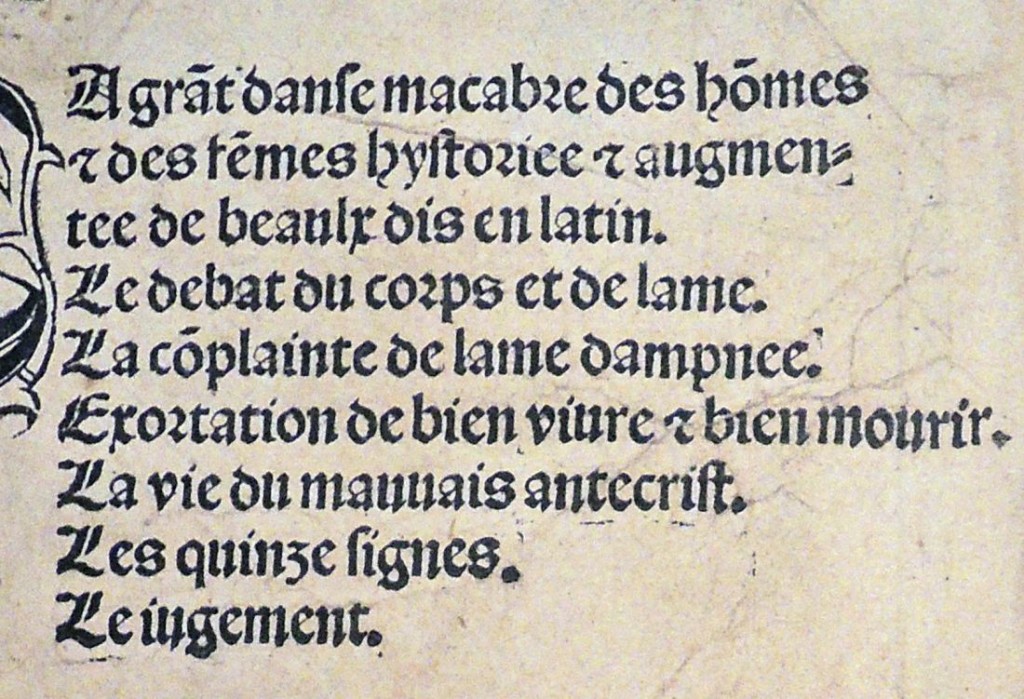 A grãt danſe macabre des hõmes
⁊ des fẽmes hyſtoriee ⁊ augmen⸗
tee de beaulx dis en latin.
Le debat du corps et de lame.
La cõplainte de lame dampnee.
Exortation de bien viure ⁊ bien mourir.
La vie du mauuais antecriſt.
Les quinze ſignes.
Le iugement.